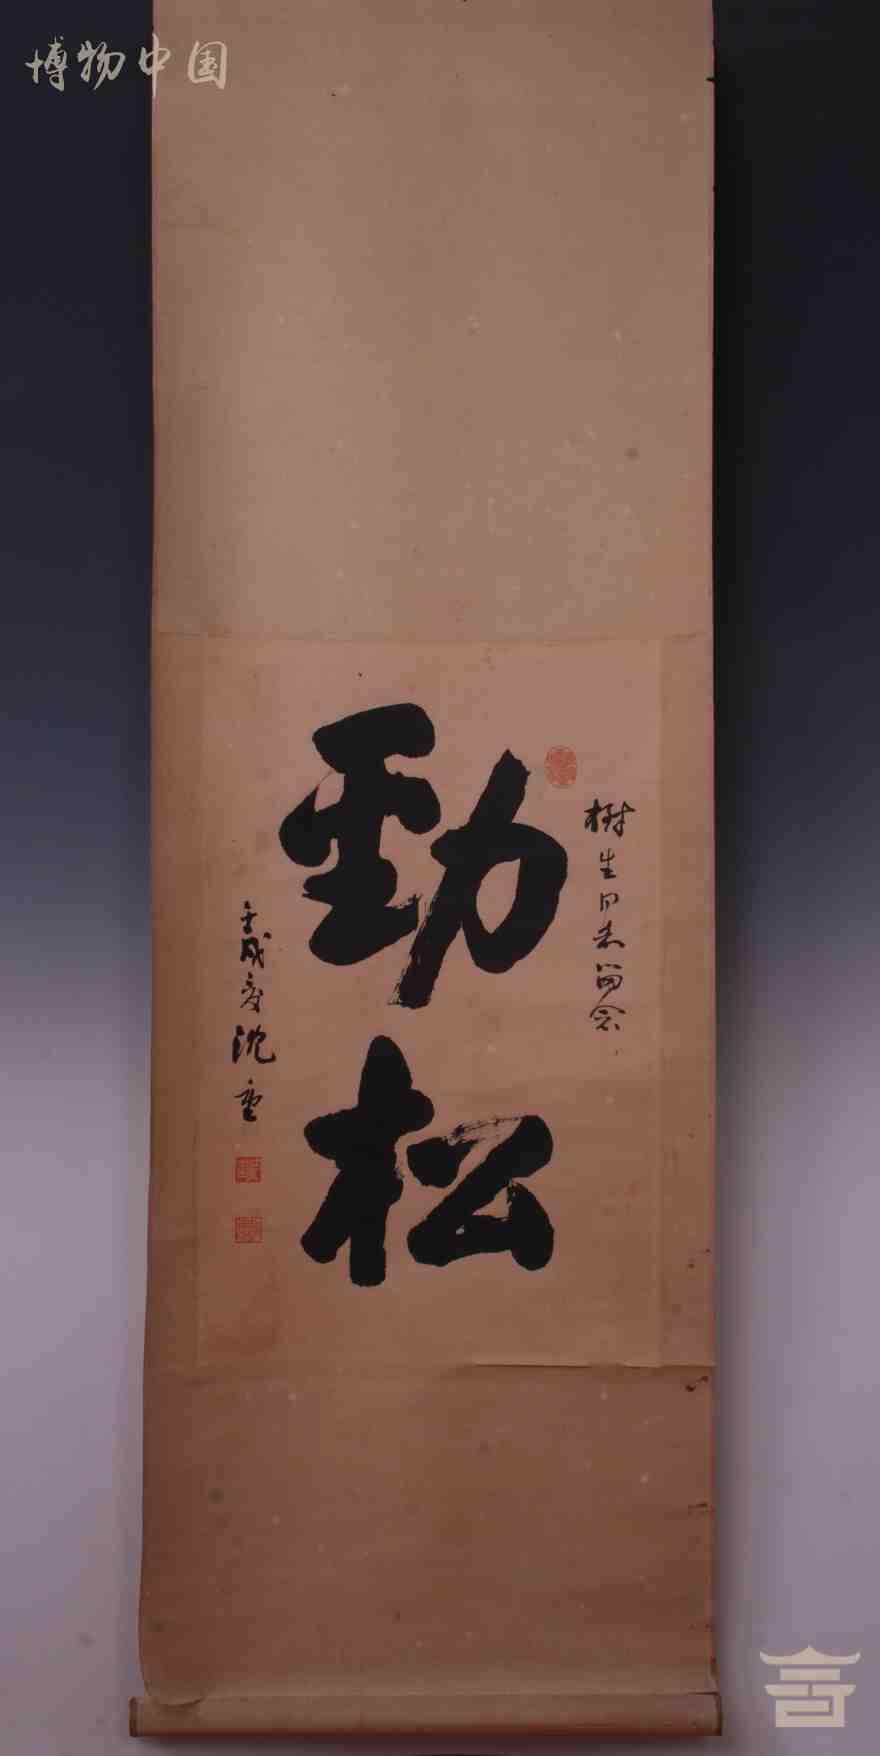 博物中国
树生同志留念
劲松
壬戌夏沈重